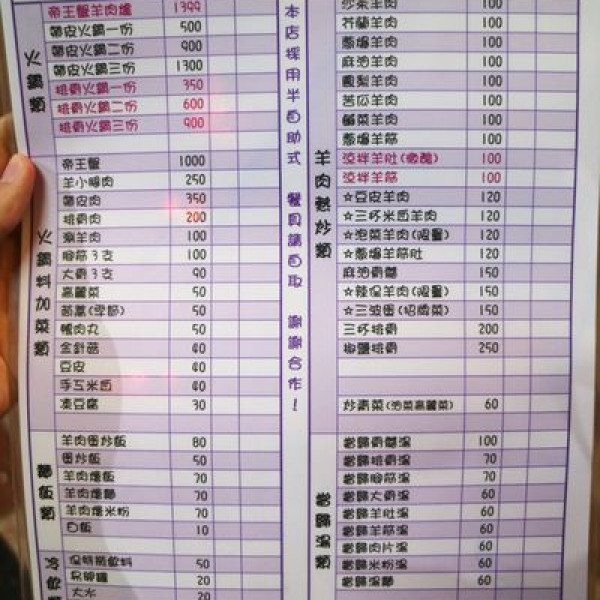 火鍋類
帝王蟹羊肉爐 1399
帶皮火鍋一份 500
帶皮火鍋二份 900
帶皮火鍋三份 1300
排骨火鍋一份 350
排骨火鍋二份 600
排骨火鍋三份 900
火鍋料加菜類
帝王蟹 1000
羊小腸肉 250
帶皮肉 350
排骨肉 200
涮羊肉 100
腳筋3支 100
大骨3支 90
高麗菜 50
茼蒿(季節) 50
鴨肉丸 50
金針菇 40
豆皮 40
手工米血 40
凍豆腐 30
麵飯類
羊肉蛋炒飯 80
蛋炒飯 50
羊肉燴飯 70
羊肉燴麵 70
羊肉燴米粉 70
白飯 10
冷飲類
保特瓶飲料 50
易開罐 20
大水 20
本店採用半自助式 餐具請自取 謝謝合作！
羊肉熱炒類
沙茶羊肉 100
芥蘭羊肉 100
蔥爆羊肉 100
麻油羊肉 100
鳳梨羊肉 100
苦瓜羊肉 100
鹹菜羊肉 100
蔥爆羊筋 100
涼拌羊肚(微酸) 100
涼拌羊筋 100
☆豆皮羊肉 120
☆三杯米血羊肉 120
☆泡菜羊肉(限量) 120
☆蔥爆羊筋肚 120
麻油骨髓 150
☆辣保羊肉(限量) 150
☆三波蛋(招牌菜) 150
三杯排骨 200
椒鹽排骨 250
炒素菜(泡菜高麗菜) 60
當歸湯類
當歸骨髓湯 100
當歸排骨湯 70
當歸腳筋湯 70
當歸大骨湯 60
當歸羊肚湯 60
當歸羊筋湯 60
當歸肉片湯 60
當歸米粉湯 60
當歸湯麵 60